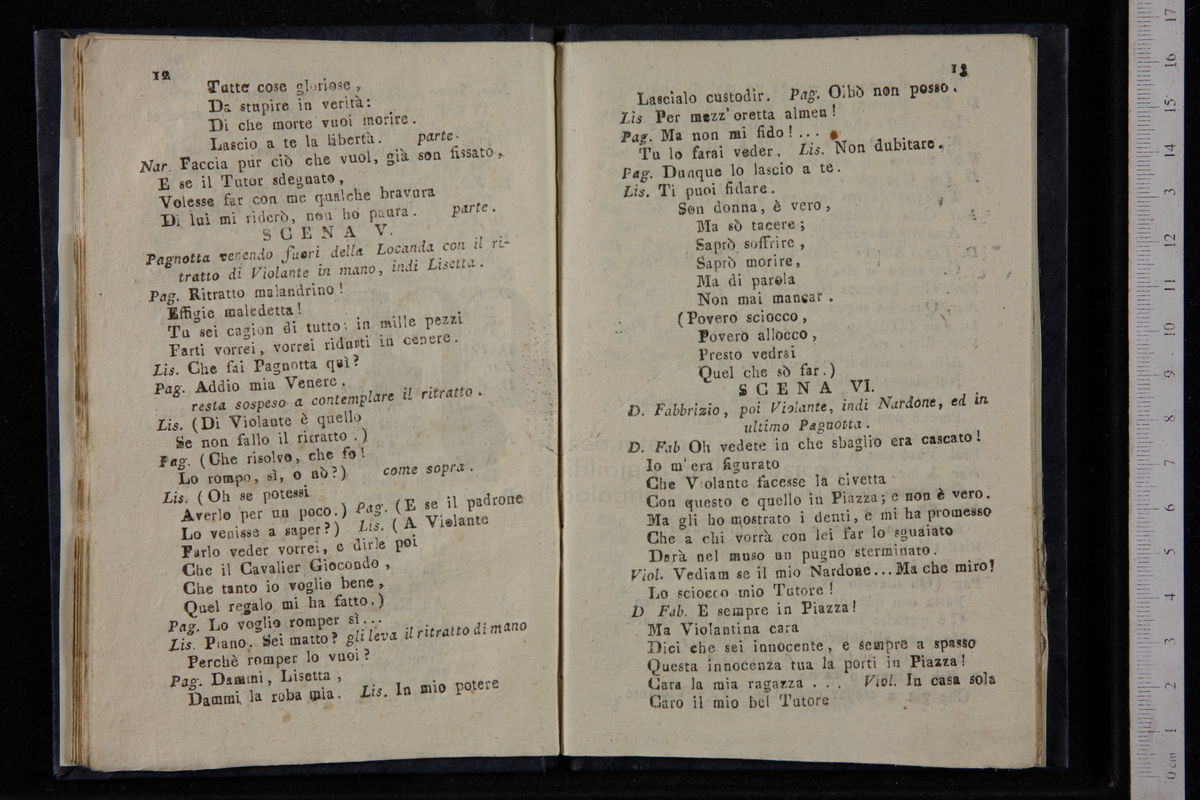 12
Tutte cose gloriose,
Da stupire in verità:
Di che morte vuoi morire.
Lascio a te la libertà. parte.
Nar. Faccia pur ciò che vuol, già son fissato,
E se il Tutor sdegnato,
Volesse far con me qualche bravura
Di lui mi riderò, non ho paura. parte.
SCENA V.
Pagnotta venendo fuori della Locanda con il ri-
tratto di Violante in mano, indi Lisetta.
Pag. Ritratto malandrino!
Effigie maledetta!
Tu sei cagion di tutto; in mille pezzi
Farti vorrei, vorrei ridurti in cenere.
Lis. Che fai Pagnotta quì?
Pag. Addio mia Venere.
resta sospeso a contemplare il ritratto.
Lis. (Di Violante è quello
Se non fallo il ritratto.)
Pag. (Che risolvo, che fo!
Lo rompo, sì, o nò?) come sopra.
Lis. (Oh se potessi
Averlo per un poco.) Pag. (E se il padrone
Lo venisse a saper?) Lis. (A Violante
Farlo veder vorrei, e dirle poi
Che il Cavalier Giocondo,
Che tanto io voglio bene,
Quel regalo mi ha fatto.)
Pag. Lo voglio romper sì...
Lis. Piano. Sei matto? gli leva il ritratto di mano
Perchè romper lo vuoi?
Pag. Dammi, Lisetta,
Dammi la roba mia. Lis. In mio potere
13
Lascialo custodir. Pag. Oibò non posso.
Lis Per mezz'oretta almen!
Pag. Ma non mi fido!...
Tu lo farai veder. Lis. Non dubitare.
Pag. Dunque lo lascio a te.
Lis. Ti puoi fidare.
Son donna, è vero,
Ma sò tacere;
Saprò soffrire,
Saprò morire,
Ma di parola
Non mai mancar.
(Povero sciocco,
Povero allocco,
Presto vedrai
Quel che sò far.)
SCENA VI.
D. Fabbrizio, poi Violante, indi Nardone, ed in
ultimo Pagnotta.
D. Fab Oh vedete in che sbaglio era cascato!
Io m'era figurato
Che Violante facesse la civetta
Con questo e quello in Piazza; e non è vero.
Ma gli ho mostrato i denti, e mi ha promesso
Che a chi vorrà con lei far lo sguaiato
Darà nel muso un pugno sterminato.
Viol. Vediam se il mio Nardone... Ma che miro!
Lo sciocco mio Tutore!
D Fab. E sempre in Piazza!
Ma Violantina cara
Dici che sei innocente, e sempre a spasso
Questa innocenza tua la porti in Piazza!
Cara la mia ragazza ... Viol. In casa sola
Caro il mio bel Tutore